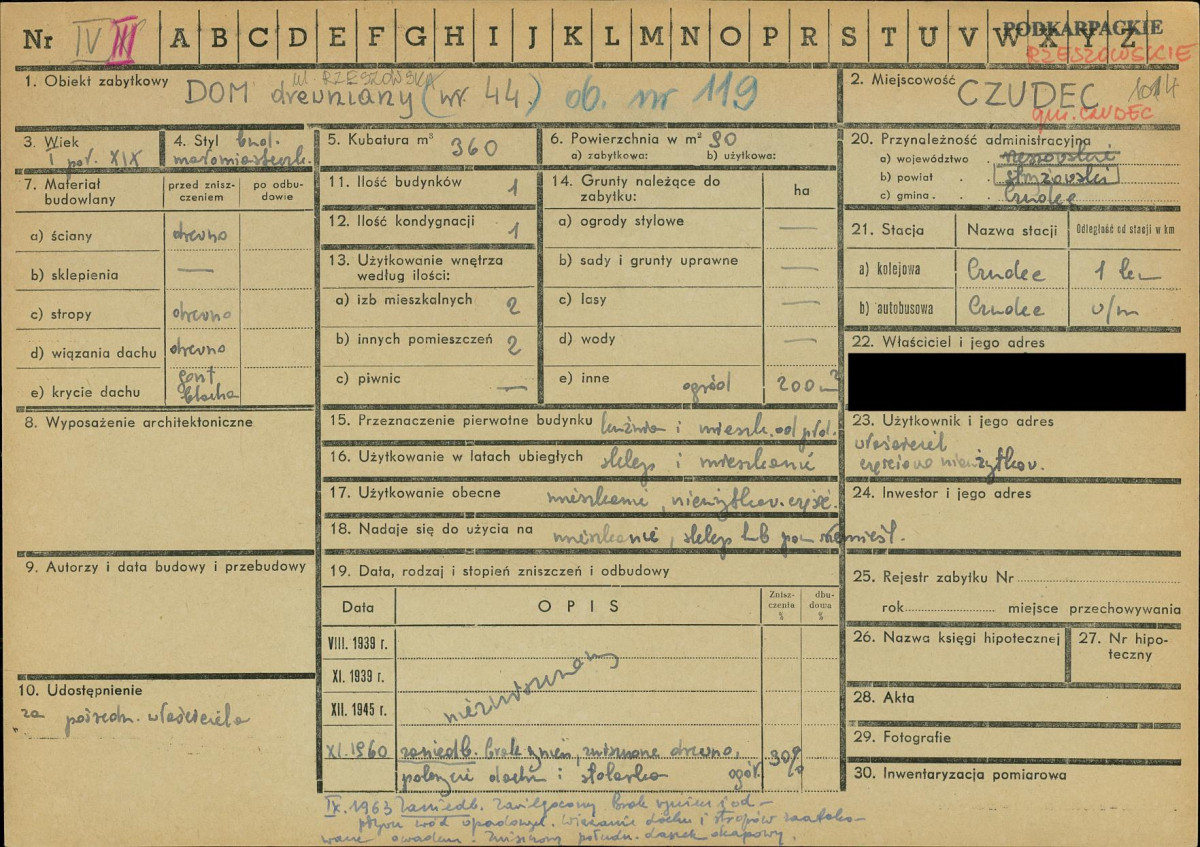 Nr IV III A B C D E F G H I J K L M N O P R S T U V W X Y Z
PODKARPACKIE
RZESZOWSKIE
1. Obiekt zabytkowy
ul. RZESZOWSKA
DOM drewniany (nr. 44.) ob. nr 119
2. Miejscowość
CZUDEC
1014
gm. CZUDEC
3. Wiek
I poł. XIX
4. Styl bud.
małomiasteczk.
5. Kubatura m³ 360
6. Powierzchnia w m² 90
a) zabytkowa: b) użytkowa:
7. Materiał budowlany
przed znisz-
czeniem
po odbu-
dowie
a) ściany drewno
b) sklepienia —
c) stropy drewno
d) wiązania dachu drewno
e) krycie dachu gont
blacha
8. Wyposażenie architektoniczne
9. Autorzy i data budowy i przebudowy
10. Udostępnienie
za pośredn. właściciela
11. Ilość budynków 1
12. Ilość kondygnacji 1
13. Użytkowanie wnętrza
według ilości:
a) izb mieszkalnych 2
b) innych pomieszczeń 2
c) piwnic —
14. Grunty należące do
zabytku:
ha
a) ogrody stylowe —
b) sady i grunty uprawne —
c) lasy —
d) wody —
e) inne ogród 200 m²
15. Przeznaczenie pierwotne budynku kuźnia i mieszk. od płd.
16. Użytkowanie w latach ubiegłych sklep i mieszkanie
17. Użytkowanie obecne mieszkanie, nieużytkow. część.
18. Nadaje się do użycia na mieszkanie, sklep lub pom. rzemieśl.
19. Data, rodzaj i stopień zniszczeń i odbudowy
Data OPIS Znisz-
czenia
% dbu-
dowa
%
VIII. 1939 r.
XI. 1939 r.
XII. 1945 r.
XI. 1960 zaniedb. brak rynien, zniszczone drewno,
połaci dachu i stolarka ogól. 30%
IX. 1963 Zaniedb. Zawilgocony brak rynien i od-
pływu wód opadowych. Wiązanie dachu i stropów zaatako-
wane owadem. Zniszczony połudn. daszek okapowy.
20. Przynależność administracyjna
a) województwo . rzeszowski
b) powiat . . strzyżowski
c) gmina . . Czudec
21. Stacja Nazwa stacji Odległość od stacji w km
a) kolejowa Czudec 1 km
b) autobusowa Czudec n/m
22. Właściciel i jego adres
23. Użytkownik i jego adres
właściciel
częściowo nieużytkow.
24. Inwestor i jego adres
25. Rejestr zabytku Nr
rok miejsce przechowywania
26. Nazwa księgi hipotecznej
27. Nr hipo-
teczny
28. Akta
29. Fotografie
30. Inwentaryzacja pomiarowa